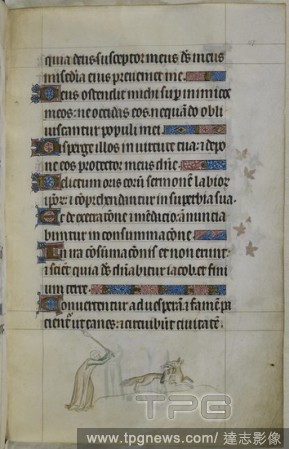 quia deus susceptor meus ds meus
misedia eius preveniet me.
Deus ostendit michi sup inimicos
meos: ne occidas eos: nequando obli
viscantur populi mei
Disperge illos in virtute tua: et depo
ne eos protector meus dne
Delictum oris eorū sermonem labior
ipor: et cōprehendantur in supbia sua
Et de execracōne et mendacio: annuncia
buntur in consummacōne
In ira cōsumacōnis et non erunt:
et scient quia ds dnabitur iacob: et fini
um terre
Convertentur ad vesperā: et famē pa
cient ut canes: et circuibunt civitatē
TPG
www.tpgnews.com/ 達志影像